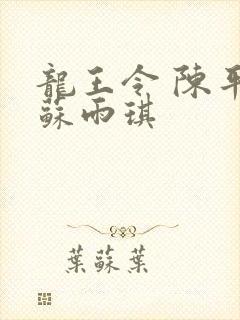 龍王令 陳平
蘇雨琪
葉蘇葉